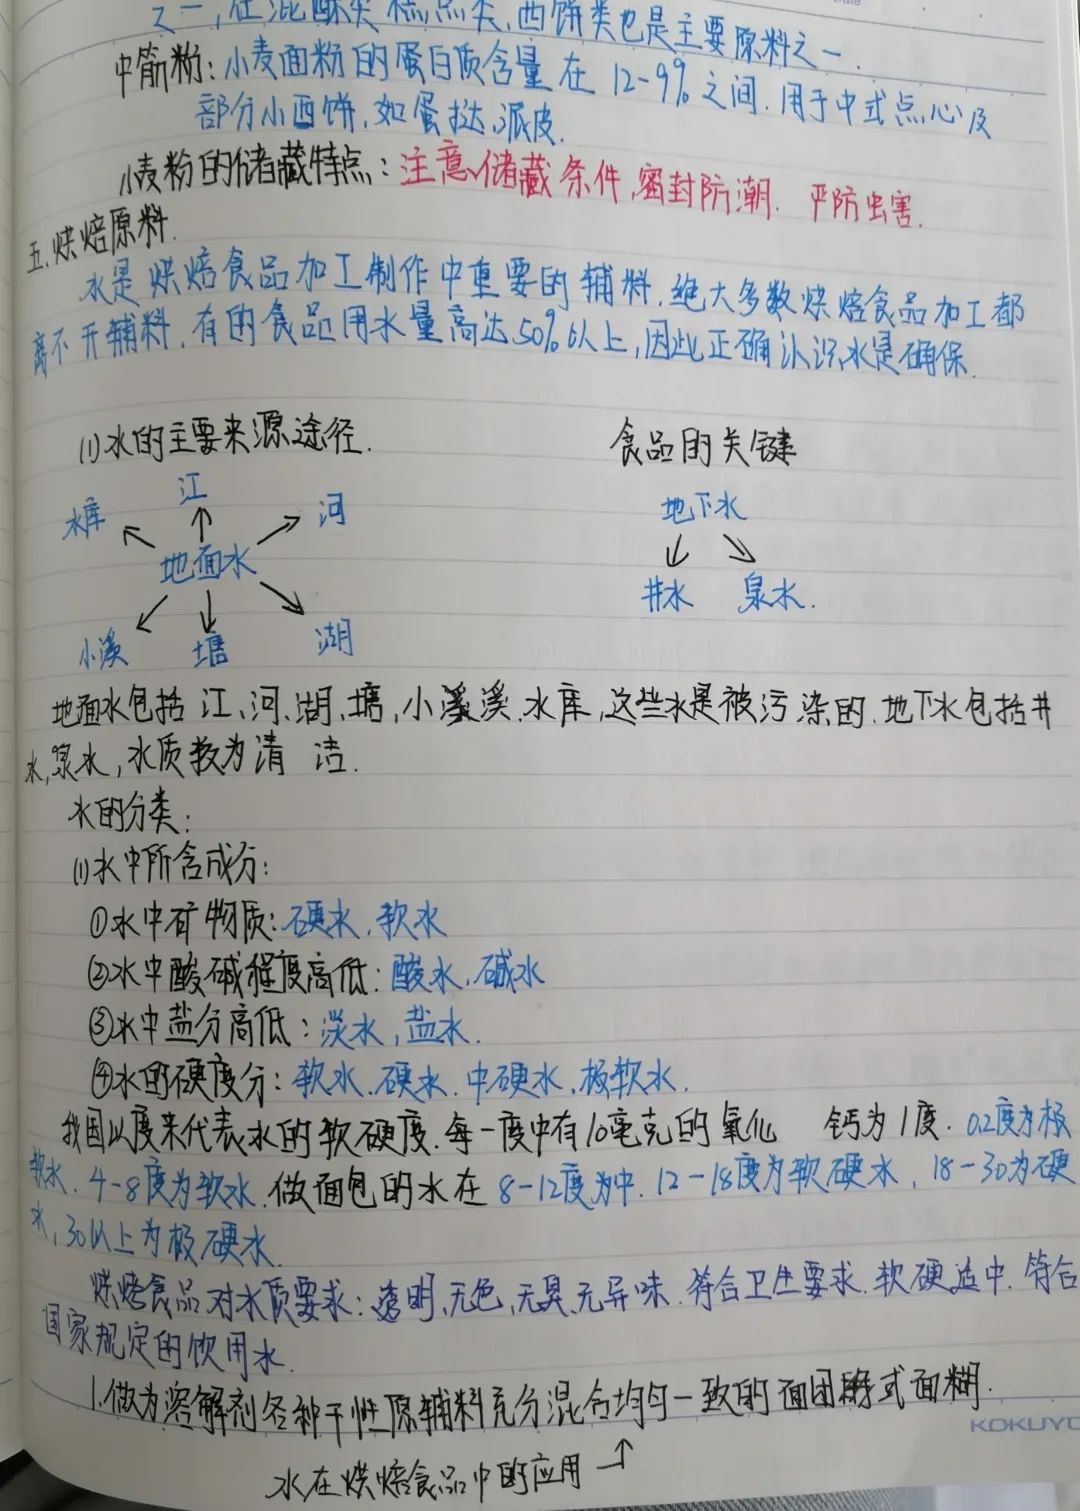 之一,在混酥类糕点类,西饼类也是主要原料之一.
中筋粉:小麦面粉的蛋白质含量在12-9%之间.用于中式点心及
部分小西饼,如蛋挞,派皮.
小麦粉的储藏特点:注意储藏条件,密封防潮. 严防虫害.
五.烘焙原料.
水是烘焙食品加工制作中重要的辅料.绝大多数烘焙食品加工都
离不开辅料.有的食品用水量高达50%以上,因此正确认识水是确保.
(1)水的主要来源途径. 食品的关键
江
水库 河 地下水
地面水
井水 泉水.
小溪 塘 湖
地面水包括江、河、湖、塘,小溪.水库,这些水是被污染的.地下水包括井
水,泉水,水质较为清 洁.
水的分类:
(1)水中所含成分:
①水中矿物质:硬水.软水
②水中酸碱程度高低:酸水.碱水
③水中盐分高低:淡水,盐水.
④水的硬度分:软水.硬水.中硬水.极软水.
我国以度来代表水的软硬度.每一度中有10毫克的氧化 钙为1度.02度为极
软水.4-8度为软水.做面包的水在8-12度为中.12-18度为软硬水,18-30为硬
水,30以上为极硬水.
烘焙食品对水质要求:透明,无色,无臭无异味.符合卫生要求.软硬适中.符合
国家规定的饮用水.
1.做为溶解剂各种干性原辅料充分混合均匀一致的面团或式面糊.
水在烘焙食品中的应用
KOKUYO